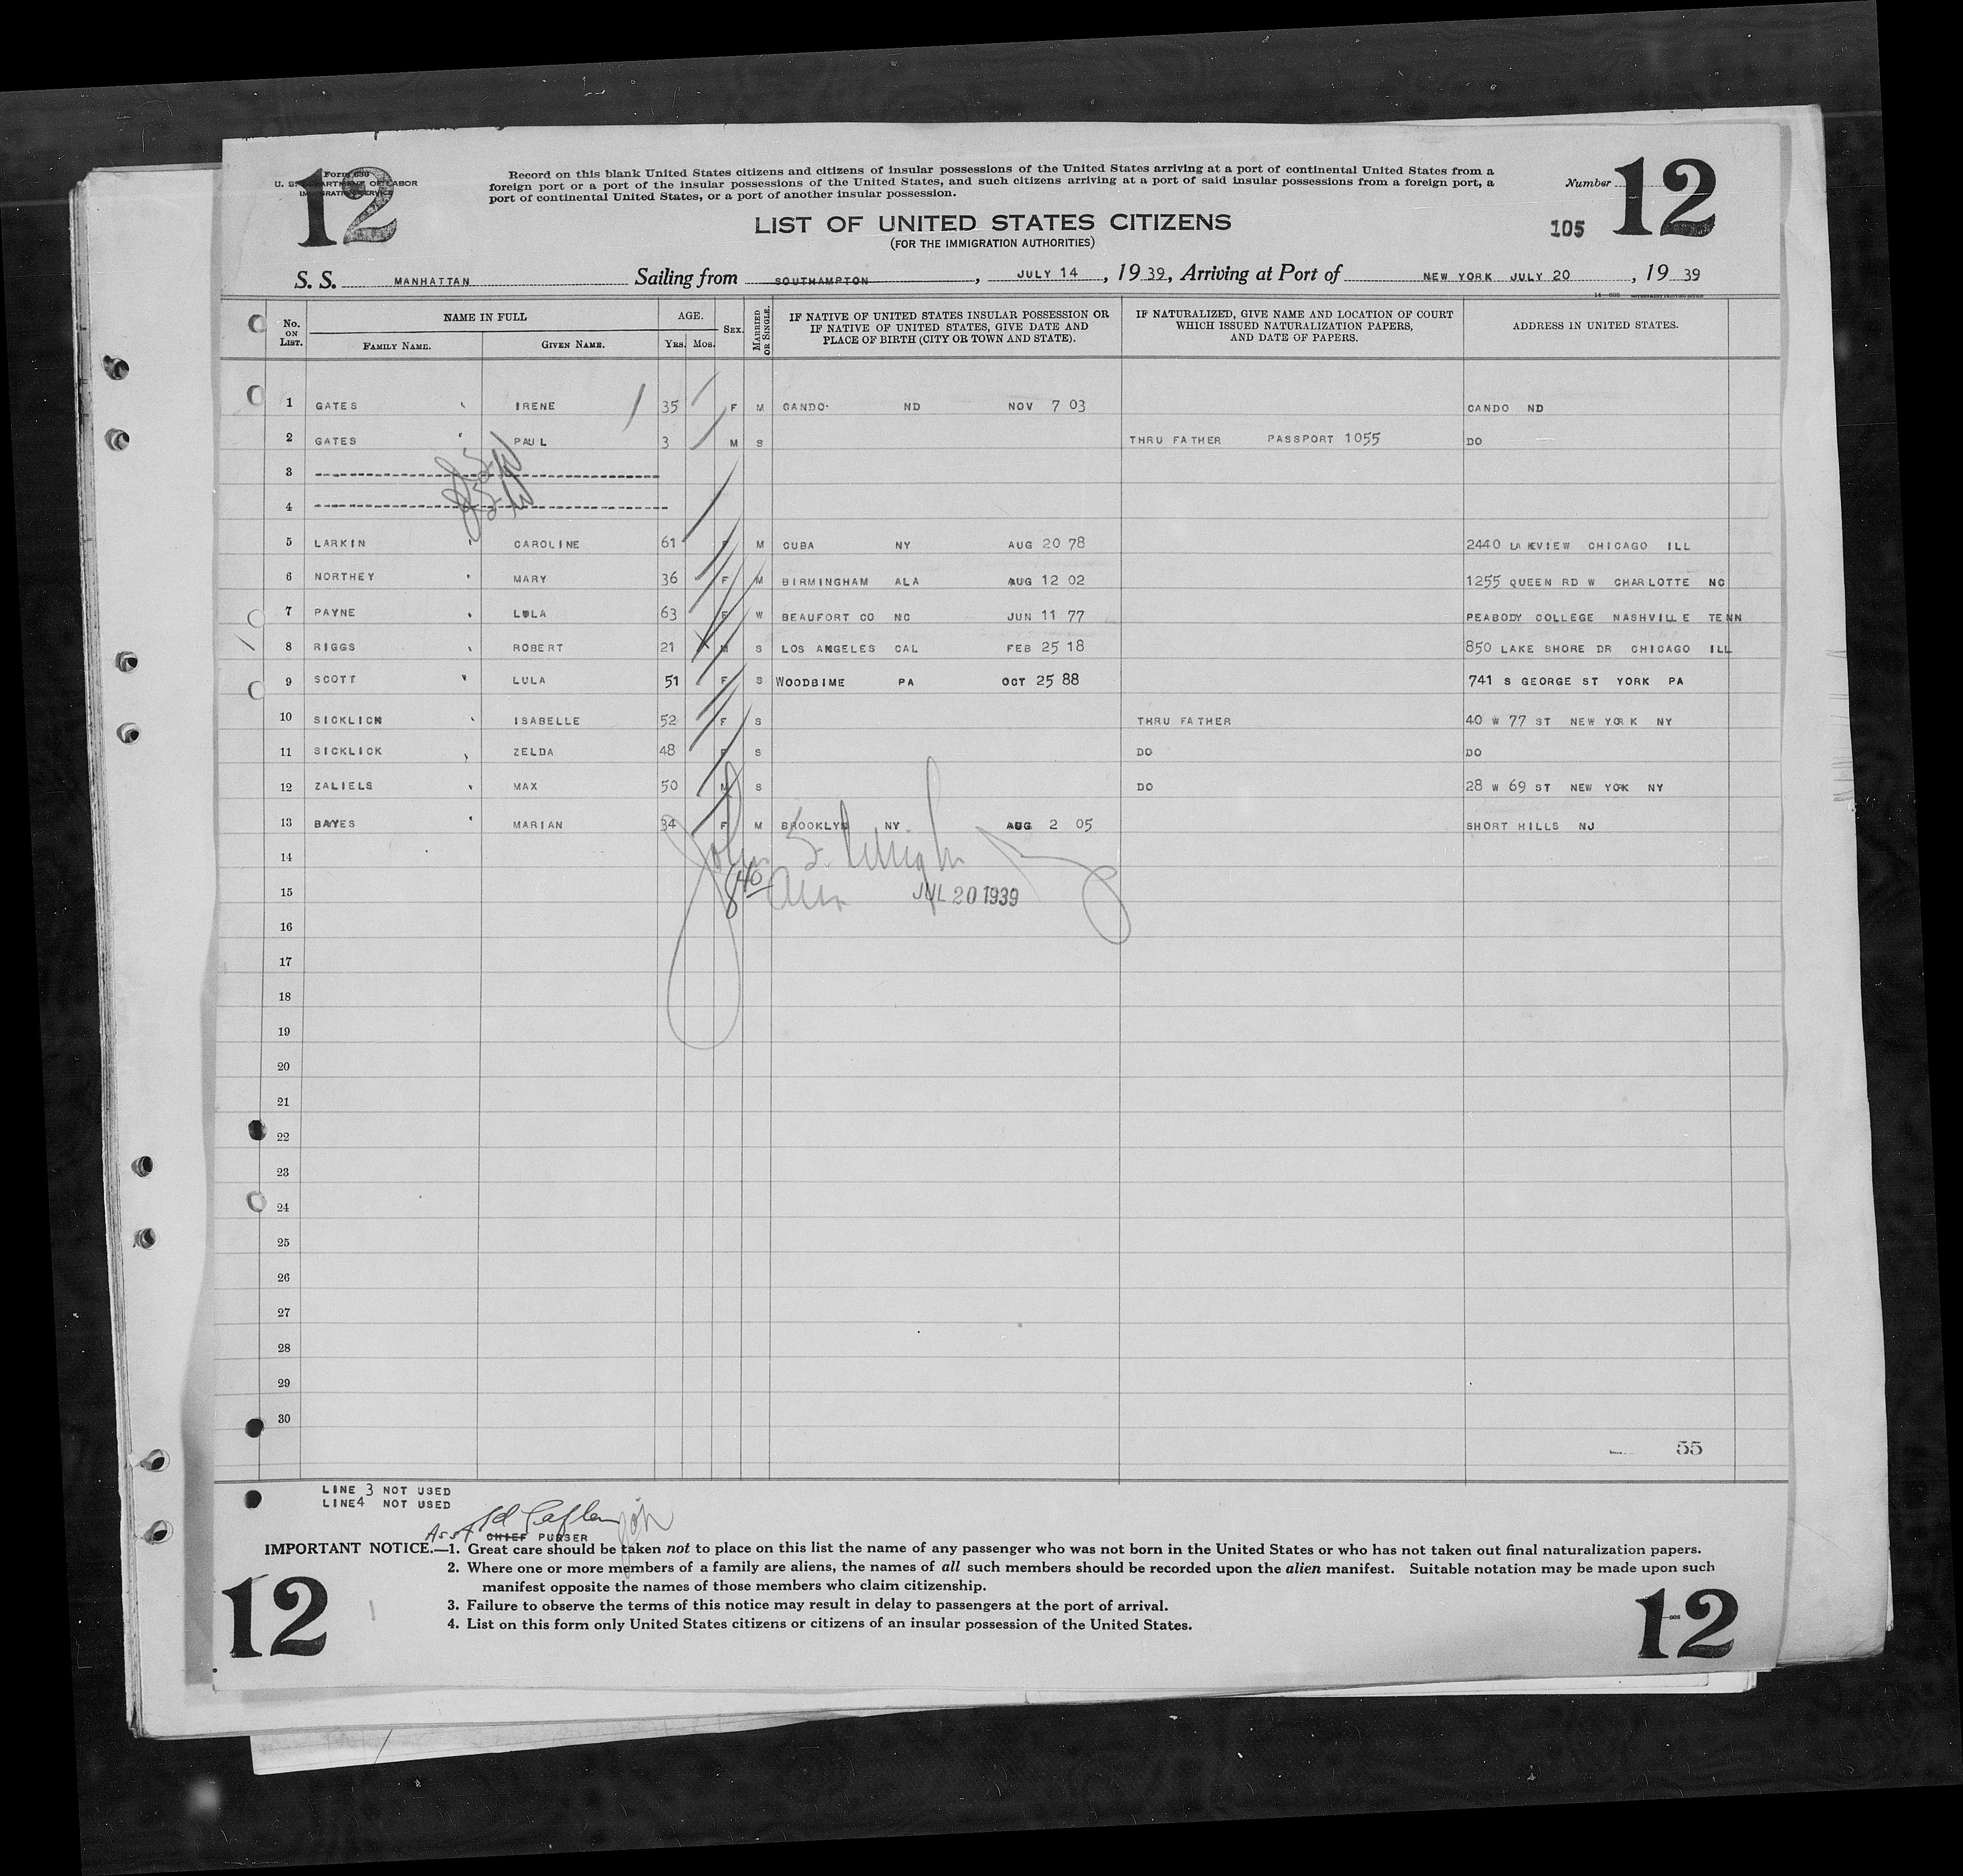 12
Form 630
U. S. DEPARTMENT OF LABOR
IMMIGRATION SERVICE
Record on this blank United States citizens and citizens of insular possessions of the United States arriving at a port of continental United States from a
foreign port or a port of the insular possessions of the United States, and such citizens arriving at a port of said insular possessions from a foreign port, a
port of continental United States, or a port of another insular possession.
Number 12
LIST OF UNITED STATES CITIZENS
(FOR THE IMMIGRATION AUTHORITIES)
105
S. S. MANHATTAN Sailing from SOUTHAMPTON, JULY 14, 19 39, Arriving at Port of NEW YORK JULY 20, 19 39
No. ON LIST. NAME IN FULL FAMILY NAME. GIVEN NAME. AGE. YRS. MOS. SEX. MARRIED OR SINGLE. IF NATIVE OF UNITED STATES INSULAR POSSESSION OR IF NATIVE OF UNITED STATES, GIVE DATE AND PLACE OF BIRTH (CITY OR TOWN AND STATE). IF NATURALIZED, GIVE NAME AND LOCATION OF COURT WHICH ISSUED NATURALIZATION PAPERS, AND DATE OF PAPERS. ADDRESS IN UNITED STATES.
1 GATES IRENE 35 F M CANDO ND NOV 7 03 CANDO ND
2 GATES PAUL 3 M S THRU FATHER PASSPORT 1055 DO
3
4
5 LARKIN CAROLINE 61 F M CUBA NY AUG 20 78 2440 LAKEVIEW CHICAGO ILL
6 NORTHEY MARY 36 F M BIRMINGHAM ALA AUG 12 02 1255 QUEEN RD W CHARLOTTE NC
7 PAYNE LULA 63 F W BEAUFORT CO NC JUN 11 77 PEABODY COLLEGE NASHVILLE TENN
8 RIGGS ROBERT 21 M S LOS ANGELES CAL FEB 25 18 850 LAKE SHORE DR CHICAGO ILL
9 SCOTT LULA 51 F S WOODBIME PA OCT 25 88 741 S GEORGE ST YORK PA
10 SICKLICK ISABELLE 52 F S THRU FATHER 40 W 77 ST NEW YORK NY
11 SICKLICK ZELDA 48 F S DO DO
12 ZALIELS MAX 50 M S DO 28 W 69 ST NEW YORK NY
13 BAYES MARIAN 34 F M BROOKLYN NY AUG 2 05 SHORT HILLS NJ
14
15 JUL 20 1939
16
17
18
19
20
21
22
23
24
25
26
27
28
29
30
55
LINE 3 NOT USED
LINE4 NOT USED
Asst CHIEF PURSER
IMPORTANT NOTICE.—1. Great care should be taken not to place on this list the name of any passenger who was not born in the United States or who has not taken out final naturalization papers.
2. Where one or more members of a family are aliens, the names of all such members should be recorded upon the alien manifest. Suitable notation may be made upon such
manifest opposite the names of those members who claim citizenship.
3. Failure to observe the terms of this notice may result in delay to passengers at the port of arrival.
4. List on this form only United States citizens or citizens of an insular possession of the United States.
12
12